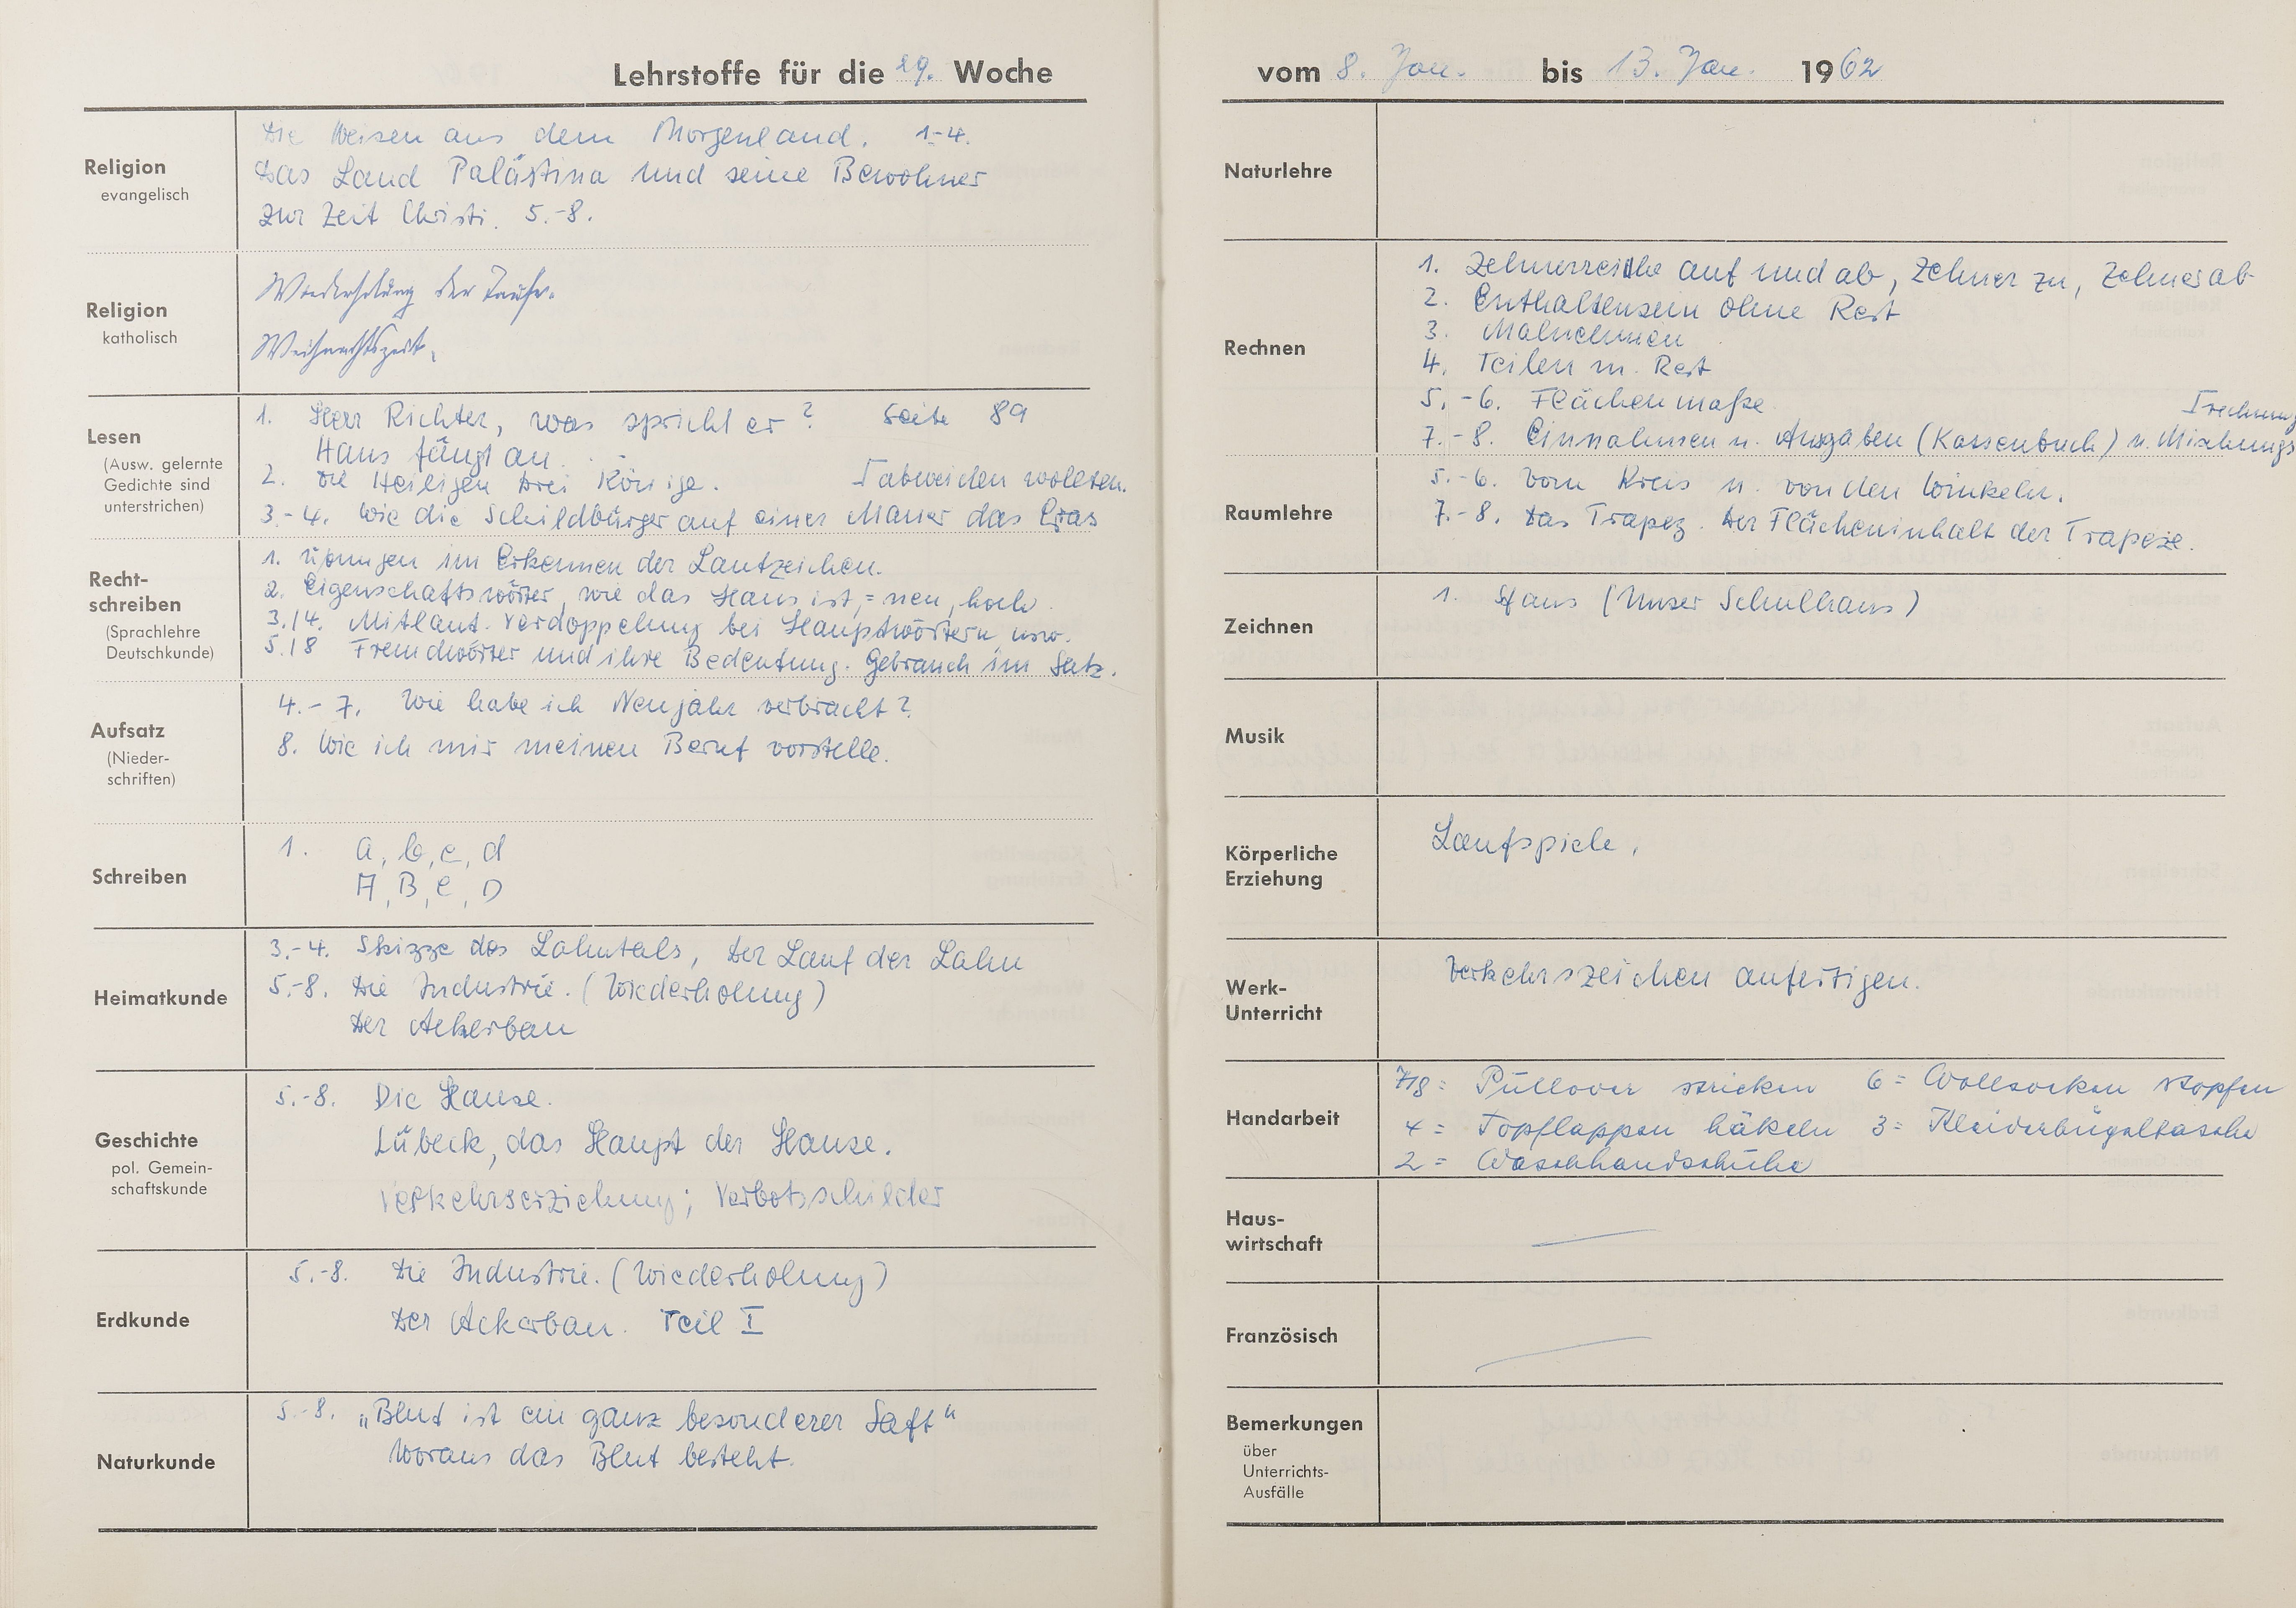 Lehrstoffe für die 29. Woche
Religion
evangelisch
Die Weisen aus dem Morgenland. 1-4.
Das Land Palästina und seine Bewohner
zur Zeit Christi. 5.-8.
Religion
katholisch
Wiederholung der Taufe.
Weihnachtszeit.
Lesen
(Ausw. gelernte
Gedichte sind
unterstrichen)
1. Herr Richter, was spricht er? Seite 89
Hans fängt an.
2. Die Heiligen Drei Könige.
3.-4. Wie die Schildbürger auf einer Mauer das Gras
abweiden wollten.
Recht-
schreiben
(Sprachlehre
Deutschkunde)
1. Übungen im Erkennen der Lautzeichen.
2. Eigenschaftswörter, wie das Haus ist, = neu, hoch.
3./4. Mitlaut-Verdoppelung bei Hauptwörtern usw.
5./8 Fremdwörter und ihre Bedeutung. Gebrauch im Satz.
Aufsatz
(Nieder-
schriften)
4.-7. Wie habe ich Neujahr verbracht?
8. Wie ich mir meinen Beruf vorstelle.
Schreiben
1. a, b, c, d
A, B, C, D
Heimatkunde
3.-4. Skizze des Lahntals, Der Lauf der Lahn
5.-8. Die Industrie. (Wiederholung)
Der Ackerbau
Geschichte
pol. Gemein-
schaftskunde
5.-8. Die Hanse.
Lübeck, das Haupt der Hanse.
Verkehrserziehung; Verbotsschilder
Erdkunde
5.-8. Die Industrie. (Wiederholung)
Der Ackerbau. Teil I
Naturkunde
5.-8. „Blut ist ein ganz besonderer Saft"
Woraus das Blut besteht.
vom 8. Jan. bis 13. Jan. 1962
Naturlehre
Rechnen
1. Zehnerreihe auf und ab, Zehner zu, Zehner ab
2. Enthaltensein ohne Rest
3. Malnehmen
4. Teilen m. Rest
5.-6. Flächenmaße
7.-8. Einnahmen u. Ausgaben (Kassenbuch) u. Mischungs
rechnung
Raumlehre
5.-6. Vom Kreis u. von den Winkeln.
7.-8. Das Trapez. Der Flächeninhalt der Trapeze.
Zeichnen
1. Haus (Unser Schulhaus)
Musik
Körperliche
Erziehung
Laufspiele.
Werk-
Unterricht
Verkehrszeichen anfertigen.
Handarbeit
7/8 = Pullover stricken 6 = Wollsocken stopfen
4 = Topflappen häkeln 3 = Kleiderbügeltasche
2 = Waschhandschuhe
Haus-
wirtschaft
Französisch
Bemerkungen
über
Unterrichts-
Ausfälle